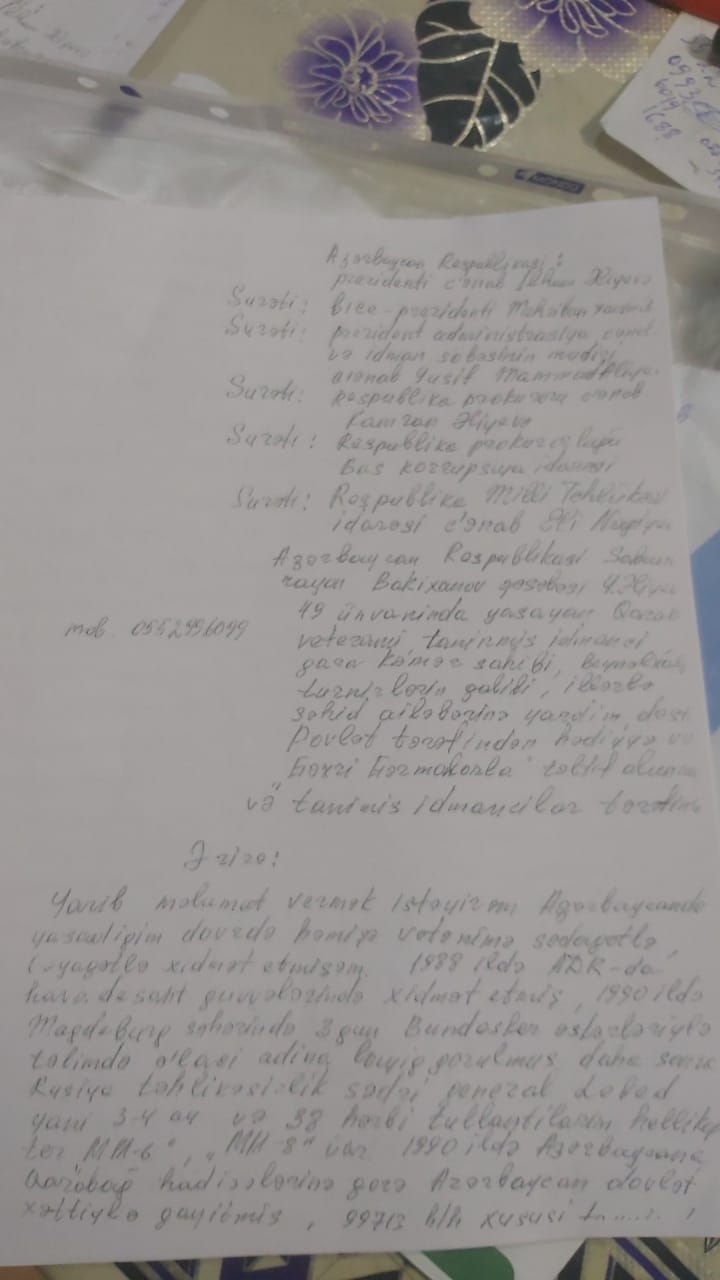 0993
6019
1688
Azərbaycan Respublikasi:
prezidenti cənab İlham Əliyevə
Surəti: vice-prezidenti Mehriban xanım
Surəti: prezident administrasiya
və idman şobəsinin mudiri
cənab Yusif Mammadəliyev
Surəti: Respublika prokuroru cənab
Kamran Əliyevə
Surəti: Respublika prokurorluğu
Baş korrupsuya idarəsi
Surəti: Respublika Milli Təhlükəs
idarəsi cənab Əli Nagiyev
Azərbaycan Respublikasi Sabun
rayon Bakixanov qəsəbəsi Y.Əliyev
49 ünvaninda yaşayan Qarab
mob. 0552996099
veterani, tanınmış idmançi
qara kəmər sahibi, Beynəlxalq
turnirlərin qalibi, illərlə
şəhid ailələrinə yardim
Dovlət tərəfindən hədiyyə və
Fəxri Fərmanlarla təltif olunan
və tanimiş idmançilar tərəfin
Ərizə:
Yazib məlumat vermək istəyirəm Azərbaycanda
yaşadigim dovrdə həmişə vətənimə sədaqətlə,
ləyaqətlə xidmət etmişəm. 1988 ildə ADR-də
hava desant quvvələrində xidmət etmiş, 1990 ildə
Magdeburg şəhərində 3 gun Bundesker əsgərləriylə
təlimdə ad layig gorulmuş daha sonra
Rusiya təhlükəsizlik sədri general Lebed
yani 3-4 ay və 38 hərbi tullantilarim hellikop
ter MИ-6", „MИ-8" var. 1990 ildə Azərbaycana
Qarabağ hadisələrinə gorə Azərbaycan dovlət
xəttiylə qayitmiş, 99713 h/h xususi